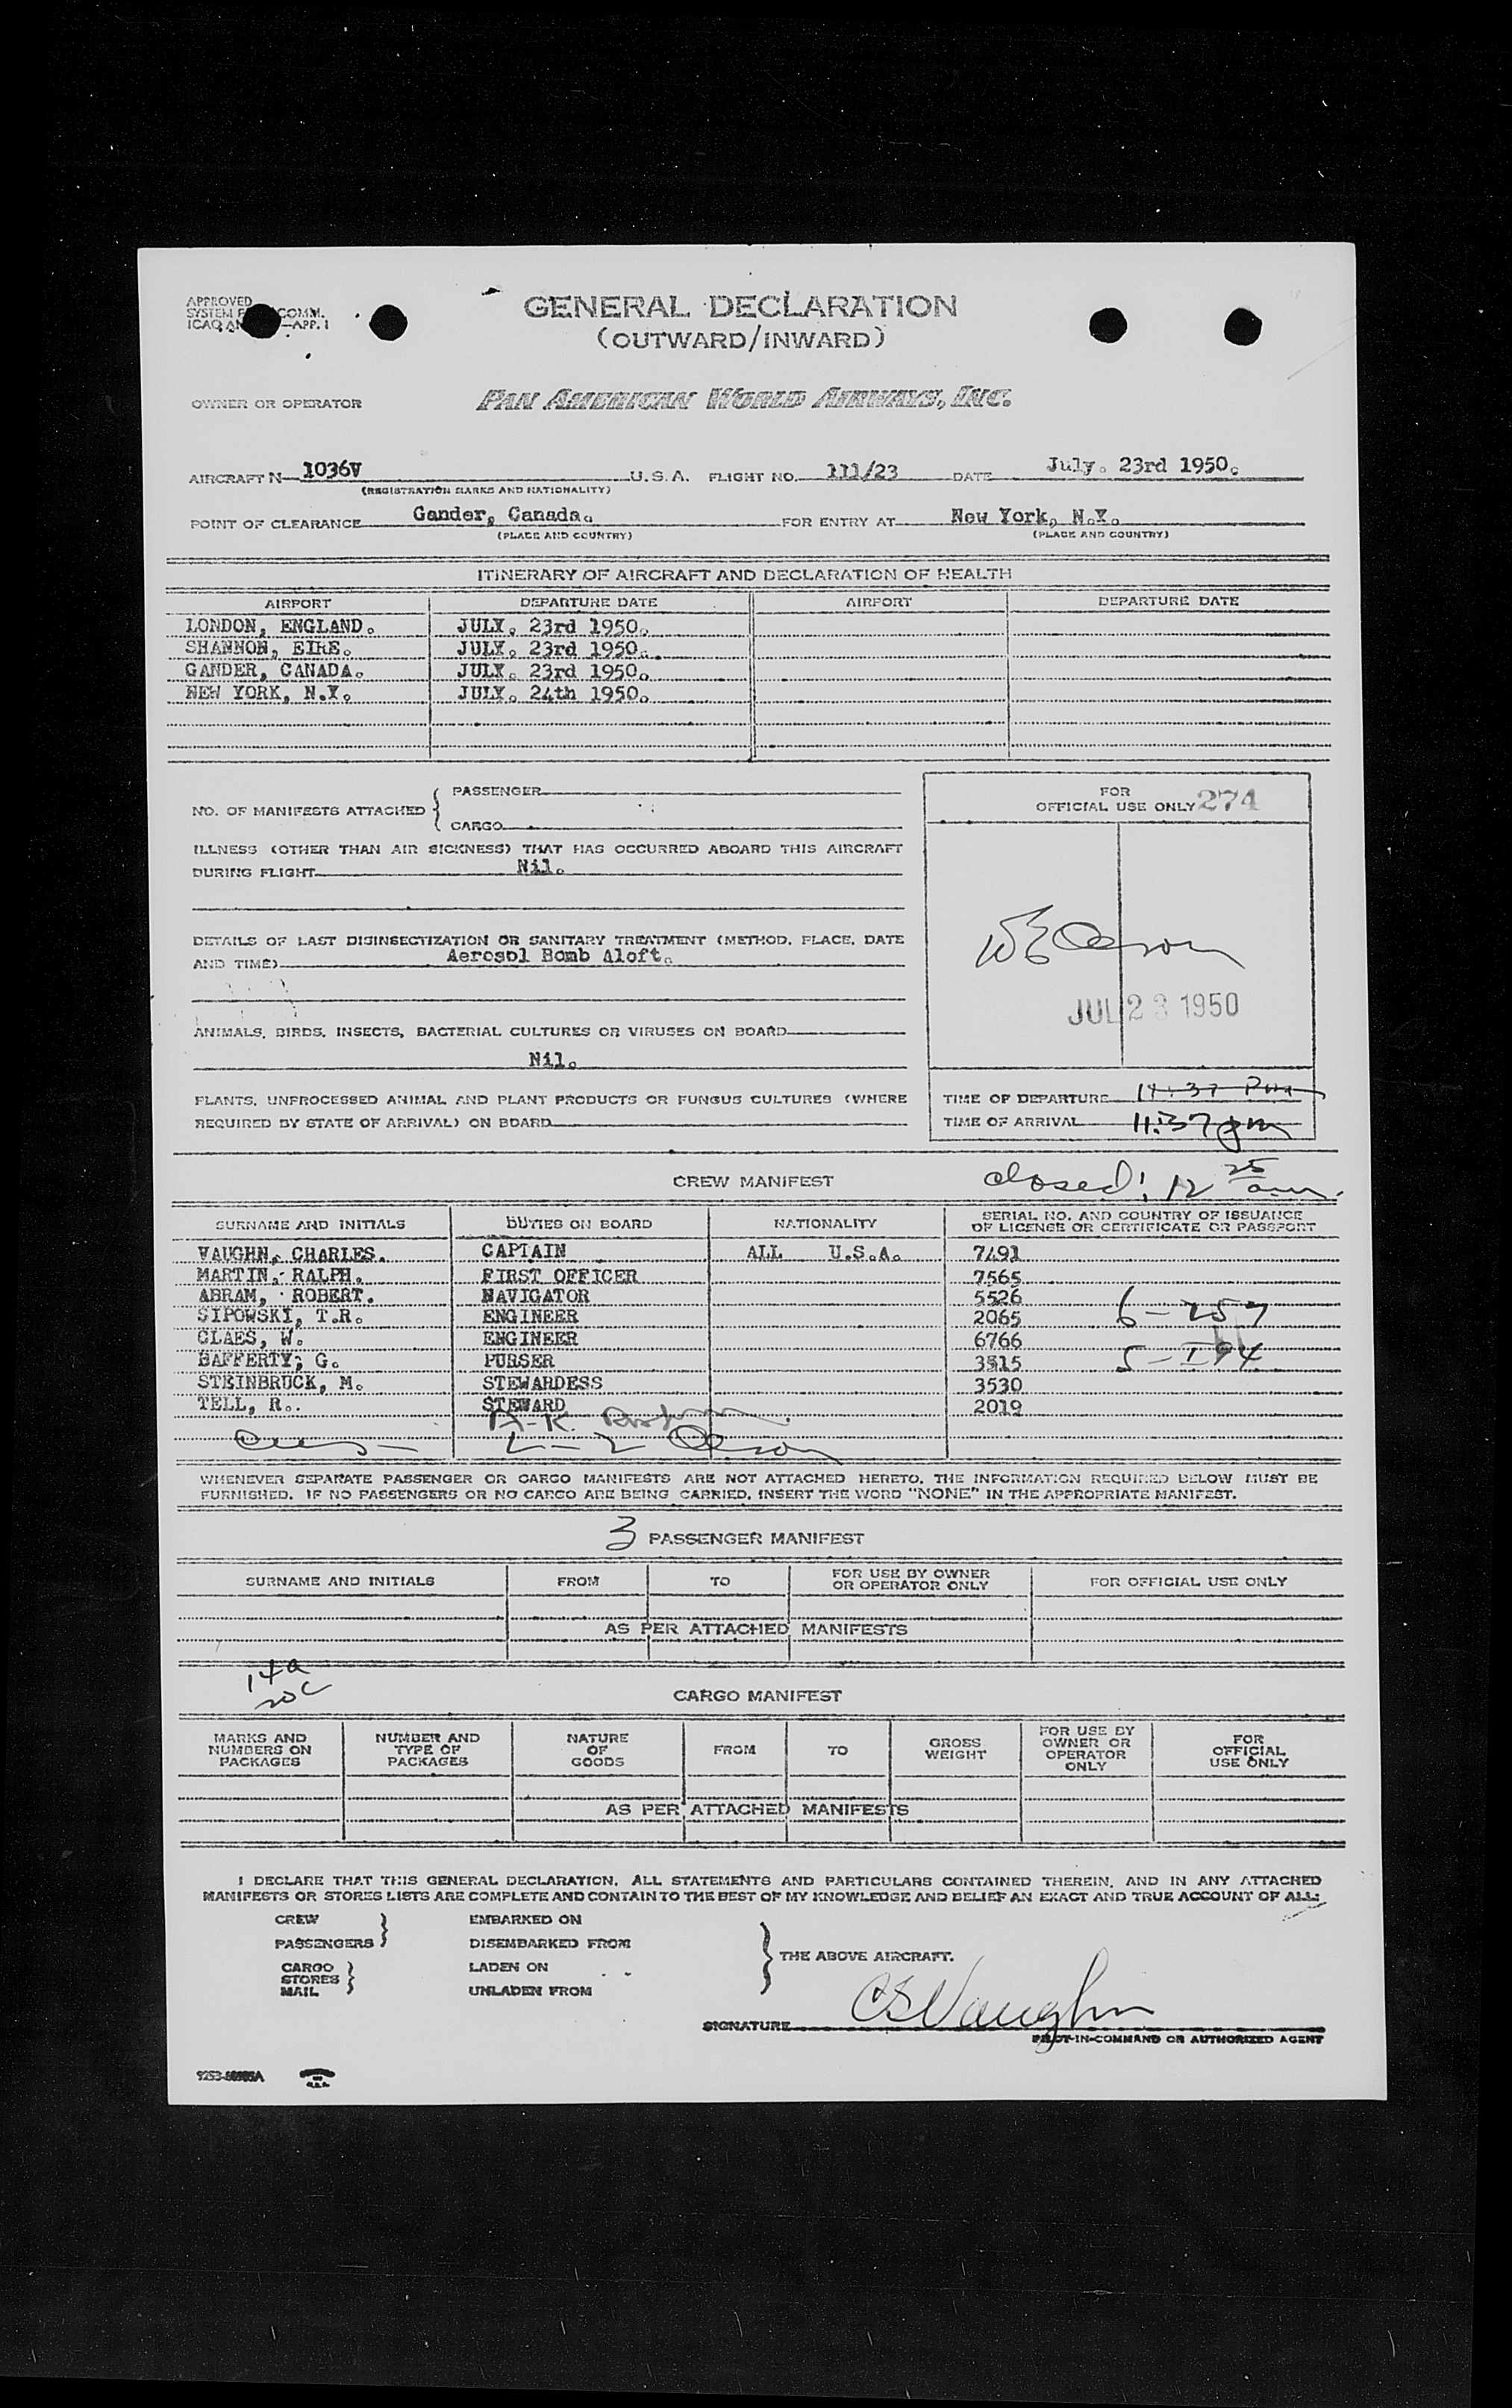 APPROVED
SYSTEM COMM.
ICAO —APP. 1
GENERAL DECLARATION
(OUTWARD/INWARD)
OWNER OR OPERATOR PAN AMERICAN WORLD AIRWAYS, INC.
AIRCRAFT N— 1036V U.S.A. FLIGHT NO. 111/23 DATE July. 23rd 1950.
(REGISTRATION MARKS AND NATIONALITY)
POINT OF CLEARANCE Gander, Canada. FOR ENTRY AT New York, N.Y.
(PLACE AND COUNTRY) (PLACE AND COUNTRY)
ITINERARY OF AIRCRAFT AND DECLARATION OF HEALTH
AIRPORT DEPARTURE DATE AIRPORT DEPARTURE DATE
LONDON, ENGLAND. JULY. 23rd 1950.
SHANNON, EIRE. JULY. 23rd 1950.
GANDER, CANADA. JULY. 23rd 1950.
NEW YORK, N.Y. JULY. 24th 1950.
NO. OF MANIFESTS ATTACHED { PASSENGER
CARGO
ILLNESS (OTHER THAN AIR SICKNESS) THAT HAS OCCURRED ABOARD THIS AIRCRAFT
DURING FLIGHT Nil.
DETAILS OF LAST DISINSECTIZATION OR SANITARY TREATMENT (METHOD, PLACE, DATE
AND TIME) Aerosol Bomb Aloft.
ANIMALS, BIRDS, INSECTS, BACTERIAL CULTURES OR VIRUSES ON BOARD
Nil.
PLANTS, UNPROCESSED ANIMAL AND PLANT PRODUCTS OR FUNGUS CULTURES (WHERE
REQUIRED BY STATE OF ARRIVAL) ON BOARD
FOR
OFFICIAL USE ONLY 274
JUL 23 1950
TIME OF DEPARTURE 11:37 Pm
TIME OF ARRIVAL 11:37 pm
CREW MANIFEST closed: 12 25 am.
SURNAME AND INITIALS DUTIES ON BOARD NATIONALITY SERIAL NO. AND COUNTRY OF ISSUANCE
OF LICENSE OR CERTIFICATE OR PASSPORT
VAUGHN, CHARLES. CAPTAIN ALL U.S.A. 7491
MARTIN, RALPH. FIRST OFFICER 7565
ABRAM, ROBERT. NAVIGATOR 5526
SIPOWSKI, T.R. ENGINEER 2065
CLAES, W. ENGINEER 6766
RAFFERTY, G. PURSER 3515
STEINBRUCK, M. STEWARDESS 3530
TELL, R. STEWARD 2019
WHENEVER SEPARATE PASSENGER OR CARGO MANIFESTS ARE NOT ATTACHED HERETO, THE INFORMATION REQUIRED BELOW MUST BE
FURNISHED. IF NO PASSENGERS OR NO CARGO ARE BEING CARRIED, INSERT THE WORD "NONE" IN THE APPROPRIATE MANIFEST.
3 PASSENGER MANIFEST
SURNAME AND INITIALS FROM TO FOR USE BY OWNER
OR OPERATOR ONLY FOR OFFICIAL USE ONLY
AS PER ATTACHED MANIFESTS
14a
20c
CARGO MANIFEST
MARKS AND
NUMBERS ON
PACKAGES
NUMBER AND
TYPE OF
PACKAGES
NATURE
OF
GOODS
FROM
TO
GROSS
WEIGHT
FOR USE BY
OWNER OR
OPERATOR
ONLY
FOR
OFFICIAL
USE ONLY
AS PER ATTACHED MANIFESTS
I DECLARE THAT THIS GENERAL DECLARATION, ALL STATEMENTS AND PARTICULARS CONTAINED THEREIN, AND IN ANY ATTACHED
MANIFESTS OR STORES LISTS ARE COMPLETE AND CONTAIN TO THE BEST OF MY KNOWLEDGE AND BELIEF AN EXACT AND TRUE ACCOUNT OF ALL:
CREW EMBARKED ON
PASSENGERS DISEMBARKED FROM
THE ABOVE AIRCRAFT.
CARGO LADEN ON
STORES
MAIL UNLADEN FROM
SIGNATURE CS Vaughn
PILOT-IN-COMMAND OR AUTHORIZED AGENT